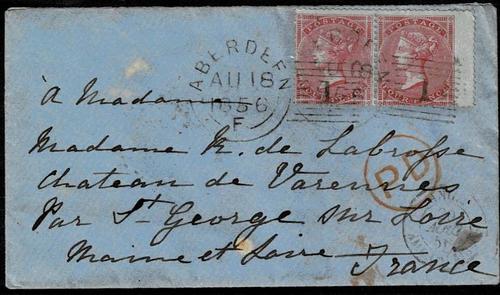 POSTAGE POSTAGE
ABERDEEN
AU 18
1856
F
1 1
à Madame
Madame R. de Labrosse
Chateau de Varennes
PD
Par St George sur Loire
Maine et Loire France